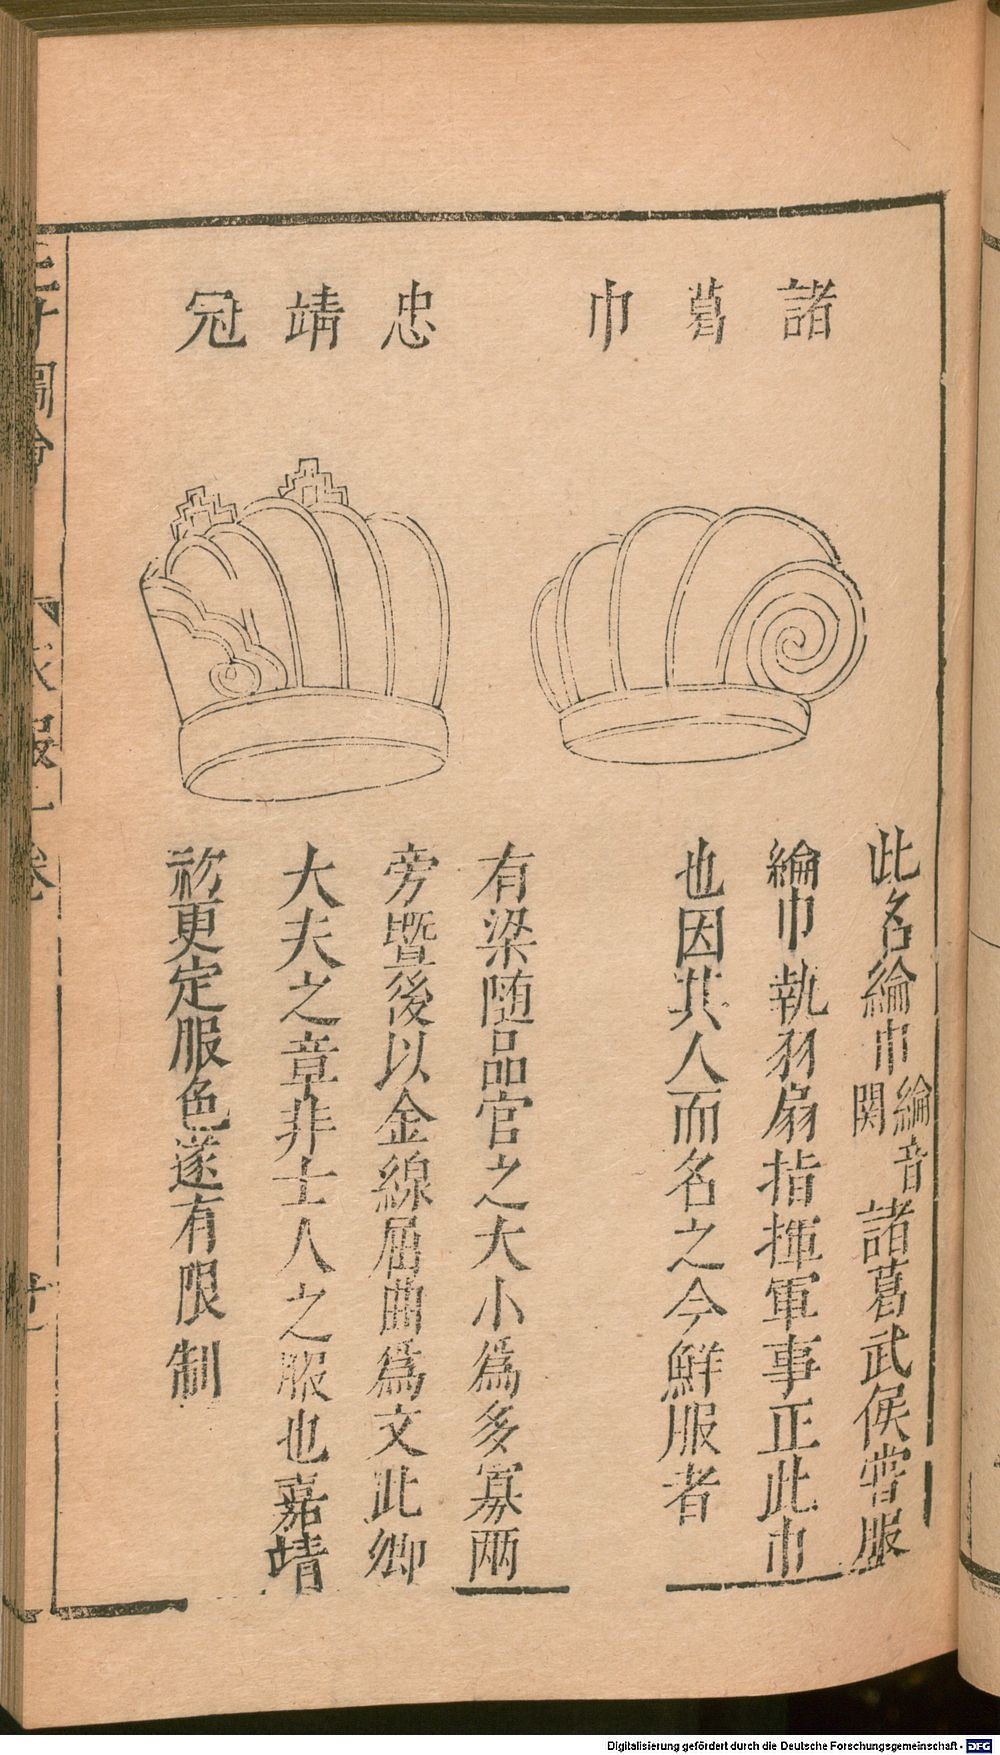 諸葛巾
此名綸巾綸音關諸葛武侯嘗服
綸巾執羽扇指揮軍事正此巾
也因其人而名之今鮮服者
忠靖冠
有梁随品官之大小為多寡兩
旁暨後以金線屈曲為文此卿
大夫之章非士人之服也嘉靖
初更定服色遂有限制
三才圖會
衣服一卷
廿一
Digitalisierung gefördert durch die Deutsche Forschungsgemeinschaft - DFG